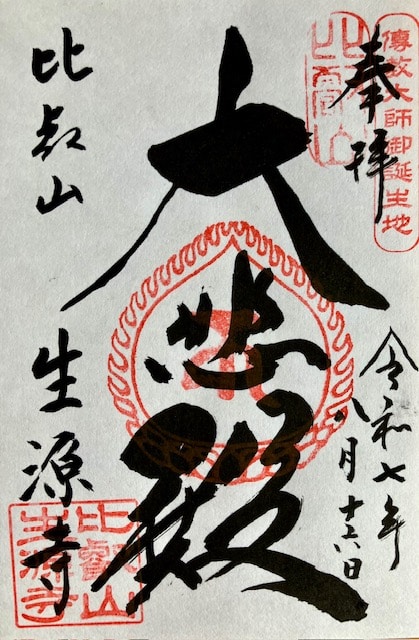 傳教大師御誕生地
奉拝
比叡山
令和七年
八月十六日
大悲殿
比叡山
生源寺
比叡山
生源寺